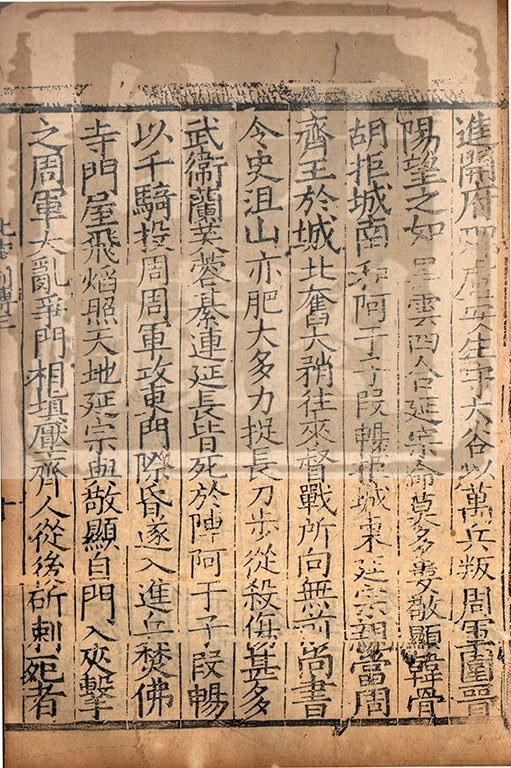 進開府那盧安生守太谷以萬兵叛周軍圍晉
陽望之如黑雲四合延宗命莫多婁敬顯韓骨
胡拒城南和阿于子段暢拒城東延宗親當周
齊王於城北奮大矟往來督戰所向無前尚書
令史沮山亦肥大多力捉長刀步從殺傷甚多
武衛蘭芙蓉綦連延長皆死於陣阿于子段暢
以千騎投周周軍攻東門際昏遂入進兵焚佛
寺門屋飛焰照天地延宗與敬顯自門入夾擊
之周軍大亂爭門相填壓齊人從後斫刺死者
列傳三